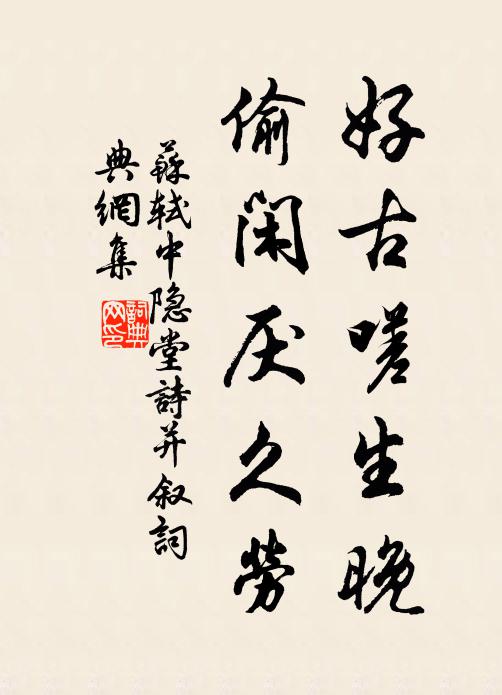 好古嗟生晚
偷閑厌久勞
蘇軾中隐堂詩并叙詞
典網集
詞典网印